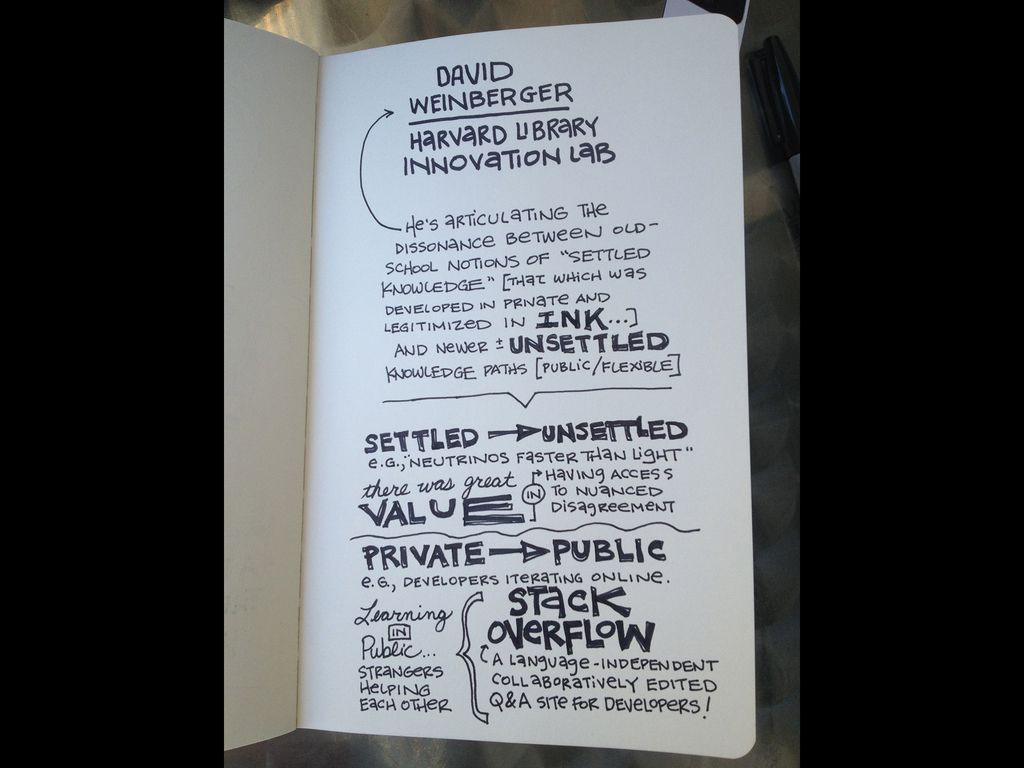 DAVID
WEINBERGER
HARVARD LIBRARY
INNOVATION LAB
He's ARTICULATING THE
DISSONANCE BETWEEN OLD-
SCHOOL NOTIONS OF "SETTLED
KNOWLEDGE" [THAT WHICH WAS
DEVELOPED IN PRIVATE AND
LEGITIMIZED IN INK...]
AND NEWER ± UNSETTLED
KNOWLEDGE PATHS [PUBLIC/FLEXIBLE]
SETTLED → UNSETTLED
e.G., "NEUTRINOS FASTER THAN LIGHT"
there was great
VALUE
IN
HAVING ACCESS
TO NUANCED
DISAGREEMENT
PRIVATE → PUBLIC
e.G., DEVELOPERS ITERATING ONLINE.
Learning
IN
Public...
STRANGERS
HELPING
EACH OTHER
STACK
OVERFLOW
A LANGUAGE-INDEPENDENT
COLLABORATIVELY EDITED
Q&A SITE FOR DEVELOPERS!